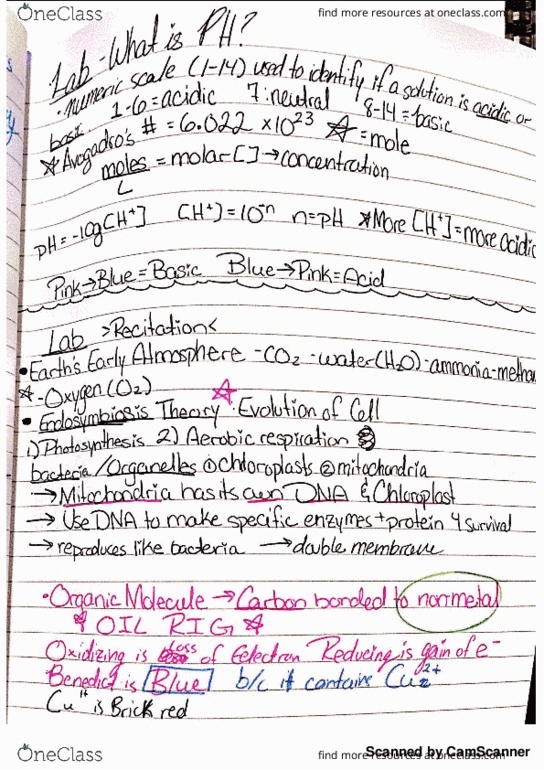 OneClass
find more resources at oneclass.com
Lab - What is PH?
• numeric scale (1-14) used to identify if a solution is acidic or
basic. 1-6 = acidic 7 = neutral 8-14 = basic
☆ Avogadro's # = 6.022 x10²³ ☆ = mole
moles = molar [ ] → concentration
L
pH = -log[H⁺] [H⁺] = 10⁻ⁿ n=pH *More [H⁺] = more acidic
Pink → Blue = Basic Blue → Pink = Acid
Lab >Recitation<
• Earth's Early Atmosphere - CO₂ - water (H₂O) - ammonia - metha
☆ - Oxygen (O₂)
• Endosymbiosis Theory ☆ • Evolution of Cell
1) Photosynthesis 2) Aerobic respiration
bacteria/Organelles ① Chloroplasts ② mitochondria
→ Mitochondria has its own DNA & Chloroplast
→ Use DNA to make specific enzymes + protein 4 survival
→ reproduces like bacteria → double membrane
• Organic Molecule → Carbon bonded to nonmetal
☆ OIL RIG ☆
Oxidizing is loss of Eelectron Reducing is gain of e⁻
Benedict is Blue b/c it contains Cu₂²⁺
Cu¹⁺ is Brick red
OneClass
find more resources at oneclass.com
Scanned by CamScanner